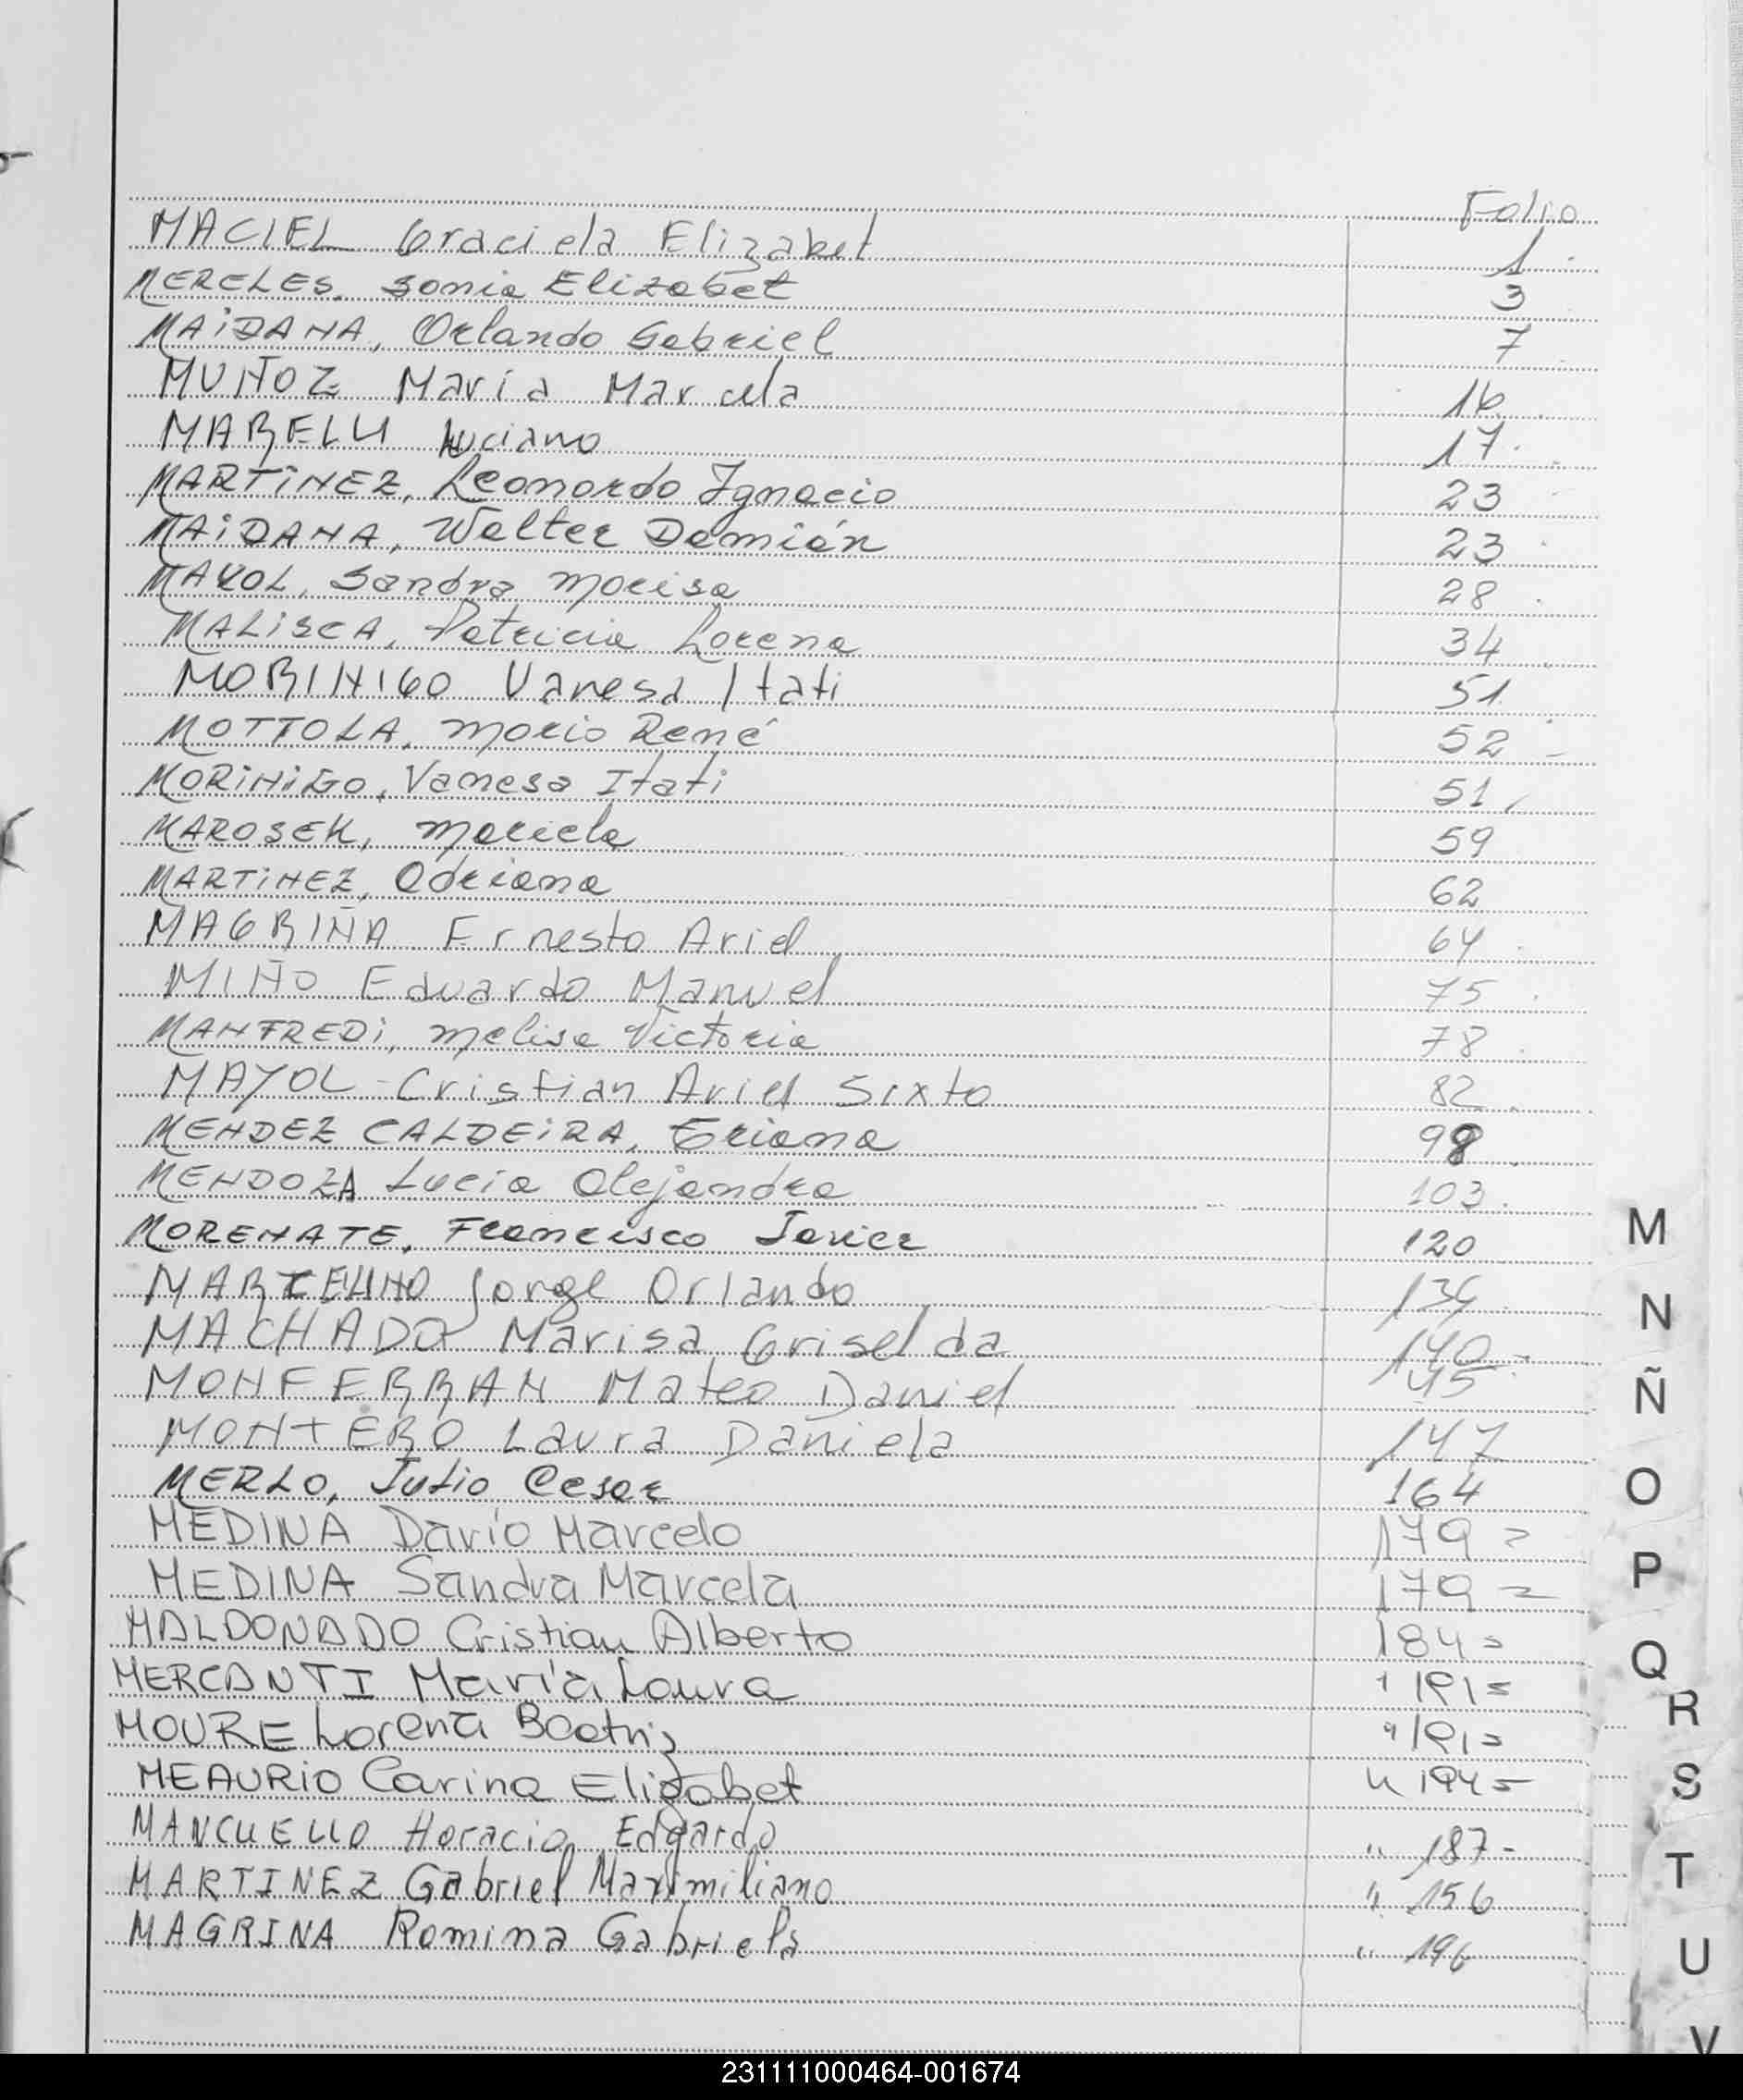 Folio
MACIEL Graciela Elizabet 1
MERELES, Sonia Elizabet 3
MAIDANA, Orlando Gabriel 7
MUÑOZ Maria Marcela 16
MARELLI Luciano 17
MARTINEZ, Leonardo Ignacio 23
MAIDANA, Walter Damián 23
MAYOL, Sandra Marisa 28
MALISCA, Patricia Lorena 34
MORINIGO Vanesa Itati 51
MOTTOLA, Mario René 52
MORINIGO, Vanesa Itati 51
MAROSEK, Mariela 59
MARTINEZ, Adriana 62
MAGRIÑA Ernesto Ariel 64
MIÑO Eduardo Manuel 75
MANFREDI, Melisa Victoria 78
MAYOL - Cristian Ariel Sixto 82
MENDEZ CALDEIRA, Eriana 98
MENDOZA Lucia Alejandra 103
MORENATE, Francisco Javier 120
MARCELINO Jorge Orlando
MACHADO Marisa Griselda 140
MONFERRAN Mateo Daniel 45
MONTERO Laura Daniela 147
MERLO, Julio Cesar 164
MEDINA Darío Marcelo 179 =
MEDINA Sandra Marcela 179 =
MALDONADO Cristian Alberto 184 =
MERCANTI María Laura " 191 =
MOURE Lorena Beatriz " 191 =
MEAURIO Carina Elizabet " 194 =
MANCUELLO Horacio Edgardo " 187 -
MARTINEZ Gabriel Maximiliano " 156
MAGRINA Romina Gabriela " 196
M
N
Ñ
O
P
Q
R
S
T
U
V
231111000464-001674